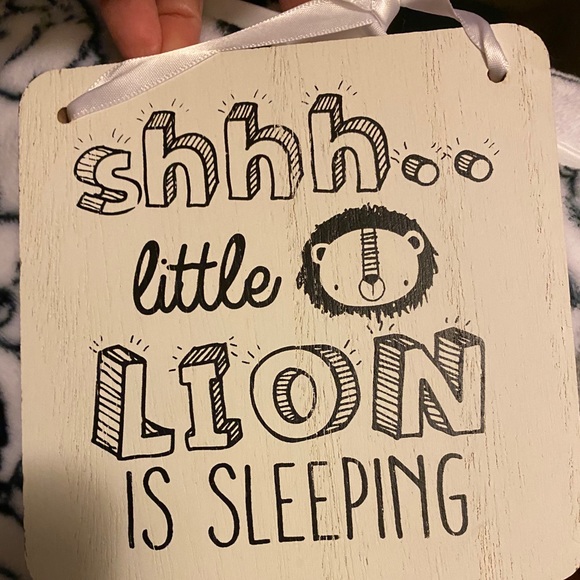 shhh..
little
LION
IS SLEEPING